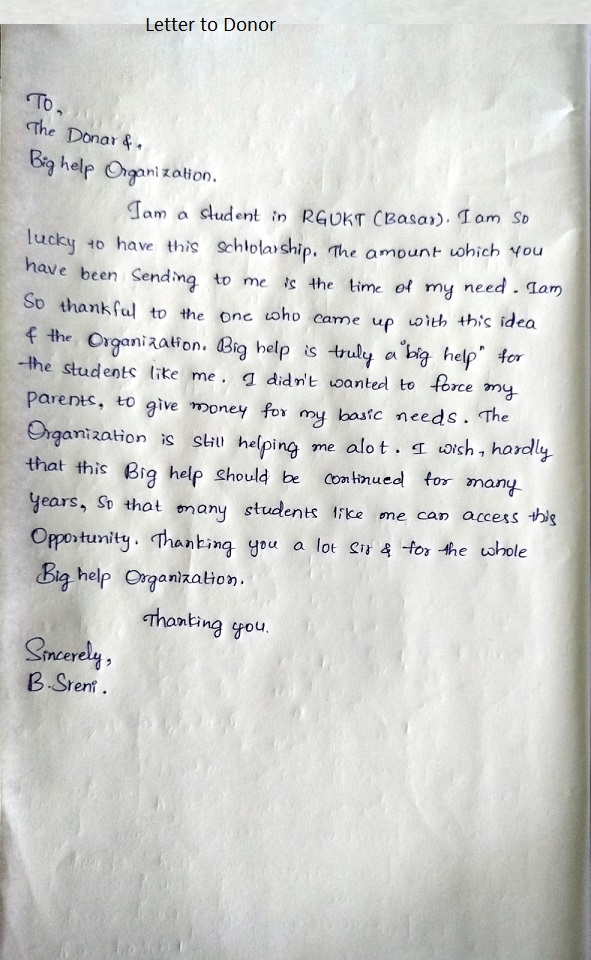 Letter to Donor
To,
The Donar &,
Big help Organization.
Iam a student in RGUKT (Basar). I am so
lucky to have this schlolarship. The amount which you
have been Sending to me is the time of my need. Iam
So thankful to the one who came up with this idea
& the Organization. Big help is truly a "big help" for
the students like me. I didn't wanted to force my
parents, to give money for my basic needs. The
Organization is still helping me alot. I wish, hardly
that this Big help should be continued for many
years, So that many students like me can access this
Opportunity. Thanking you a lot Sir & for the whole
Big help Organization.
Thanking you.
Sincerely,
B.Sreni.